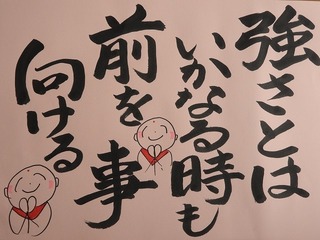 強さとは
いかなる時も
前を
向ける
事